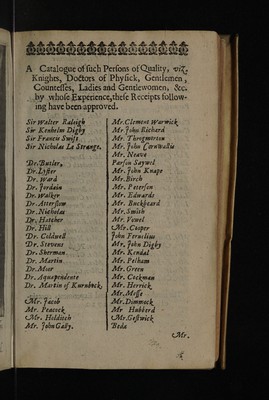 A Catalogue of such Persons of Quality, viz.
Knights, Doctors of Physick, Gentlemen,
Countesses, Ladies and Gentlewomen, &c.
by whose Experience, these Receipts follow-
ing have been approved.
Sir Walter Raleigh
Sir Kenhelm Digby
Sir Francis Swift
Sir Nicholas Le Strange.
Dr. Butler,
Dr. Lyster
Dr. Ward
Dr. Jordain
Dr. Walker
Dr. Atterslow
Dr. Nicholas
Dr. Hatcher
Dr. Hill
Dr. Coldwell
Dr. Stevens
Dr. Sherman.
Dr. Martin
Dr. Moor
Dr. Aquapendente
Dr. Martin of Kurnbeck.
Mr. Jacob
Mr. Peacock
Mr. Hilditch
Mr. John Gally.
Mr. Clement Warwick
Mr John Richard
Mr. Throgmorton
Mr. John Cornwallis
Mr. Neave
Parson Saywel
Mr. John Knape
Mr. Birch
Mr. Peterson
Mr. Edwards
Mr. Buckheard
Mr. Smith
Mr. Vowel
Mr. Cooper
John Feraclius
Mr. John Digby
Mr. Kendal
Mr. Pelham
Mr. Green
Mr. Cockman
Mr. Herrick
Mr. Messe
Mr. Dimmock
Mr Hubberd
Mr. Gestwick
Beda
Mr.